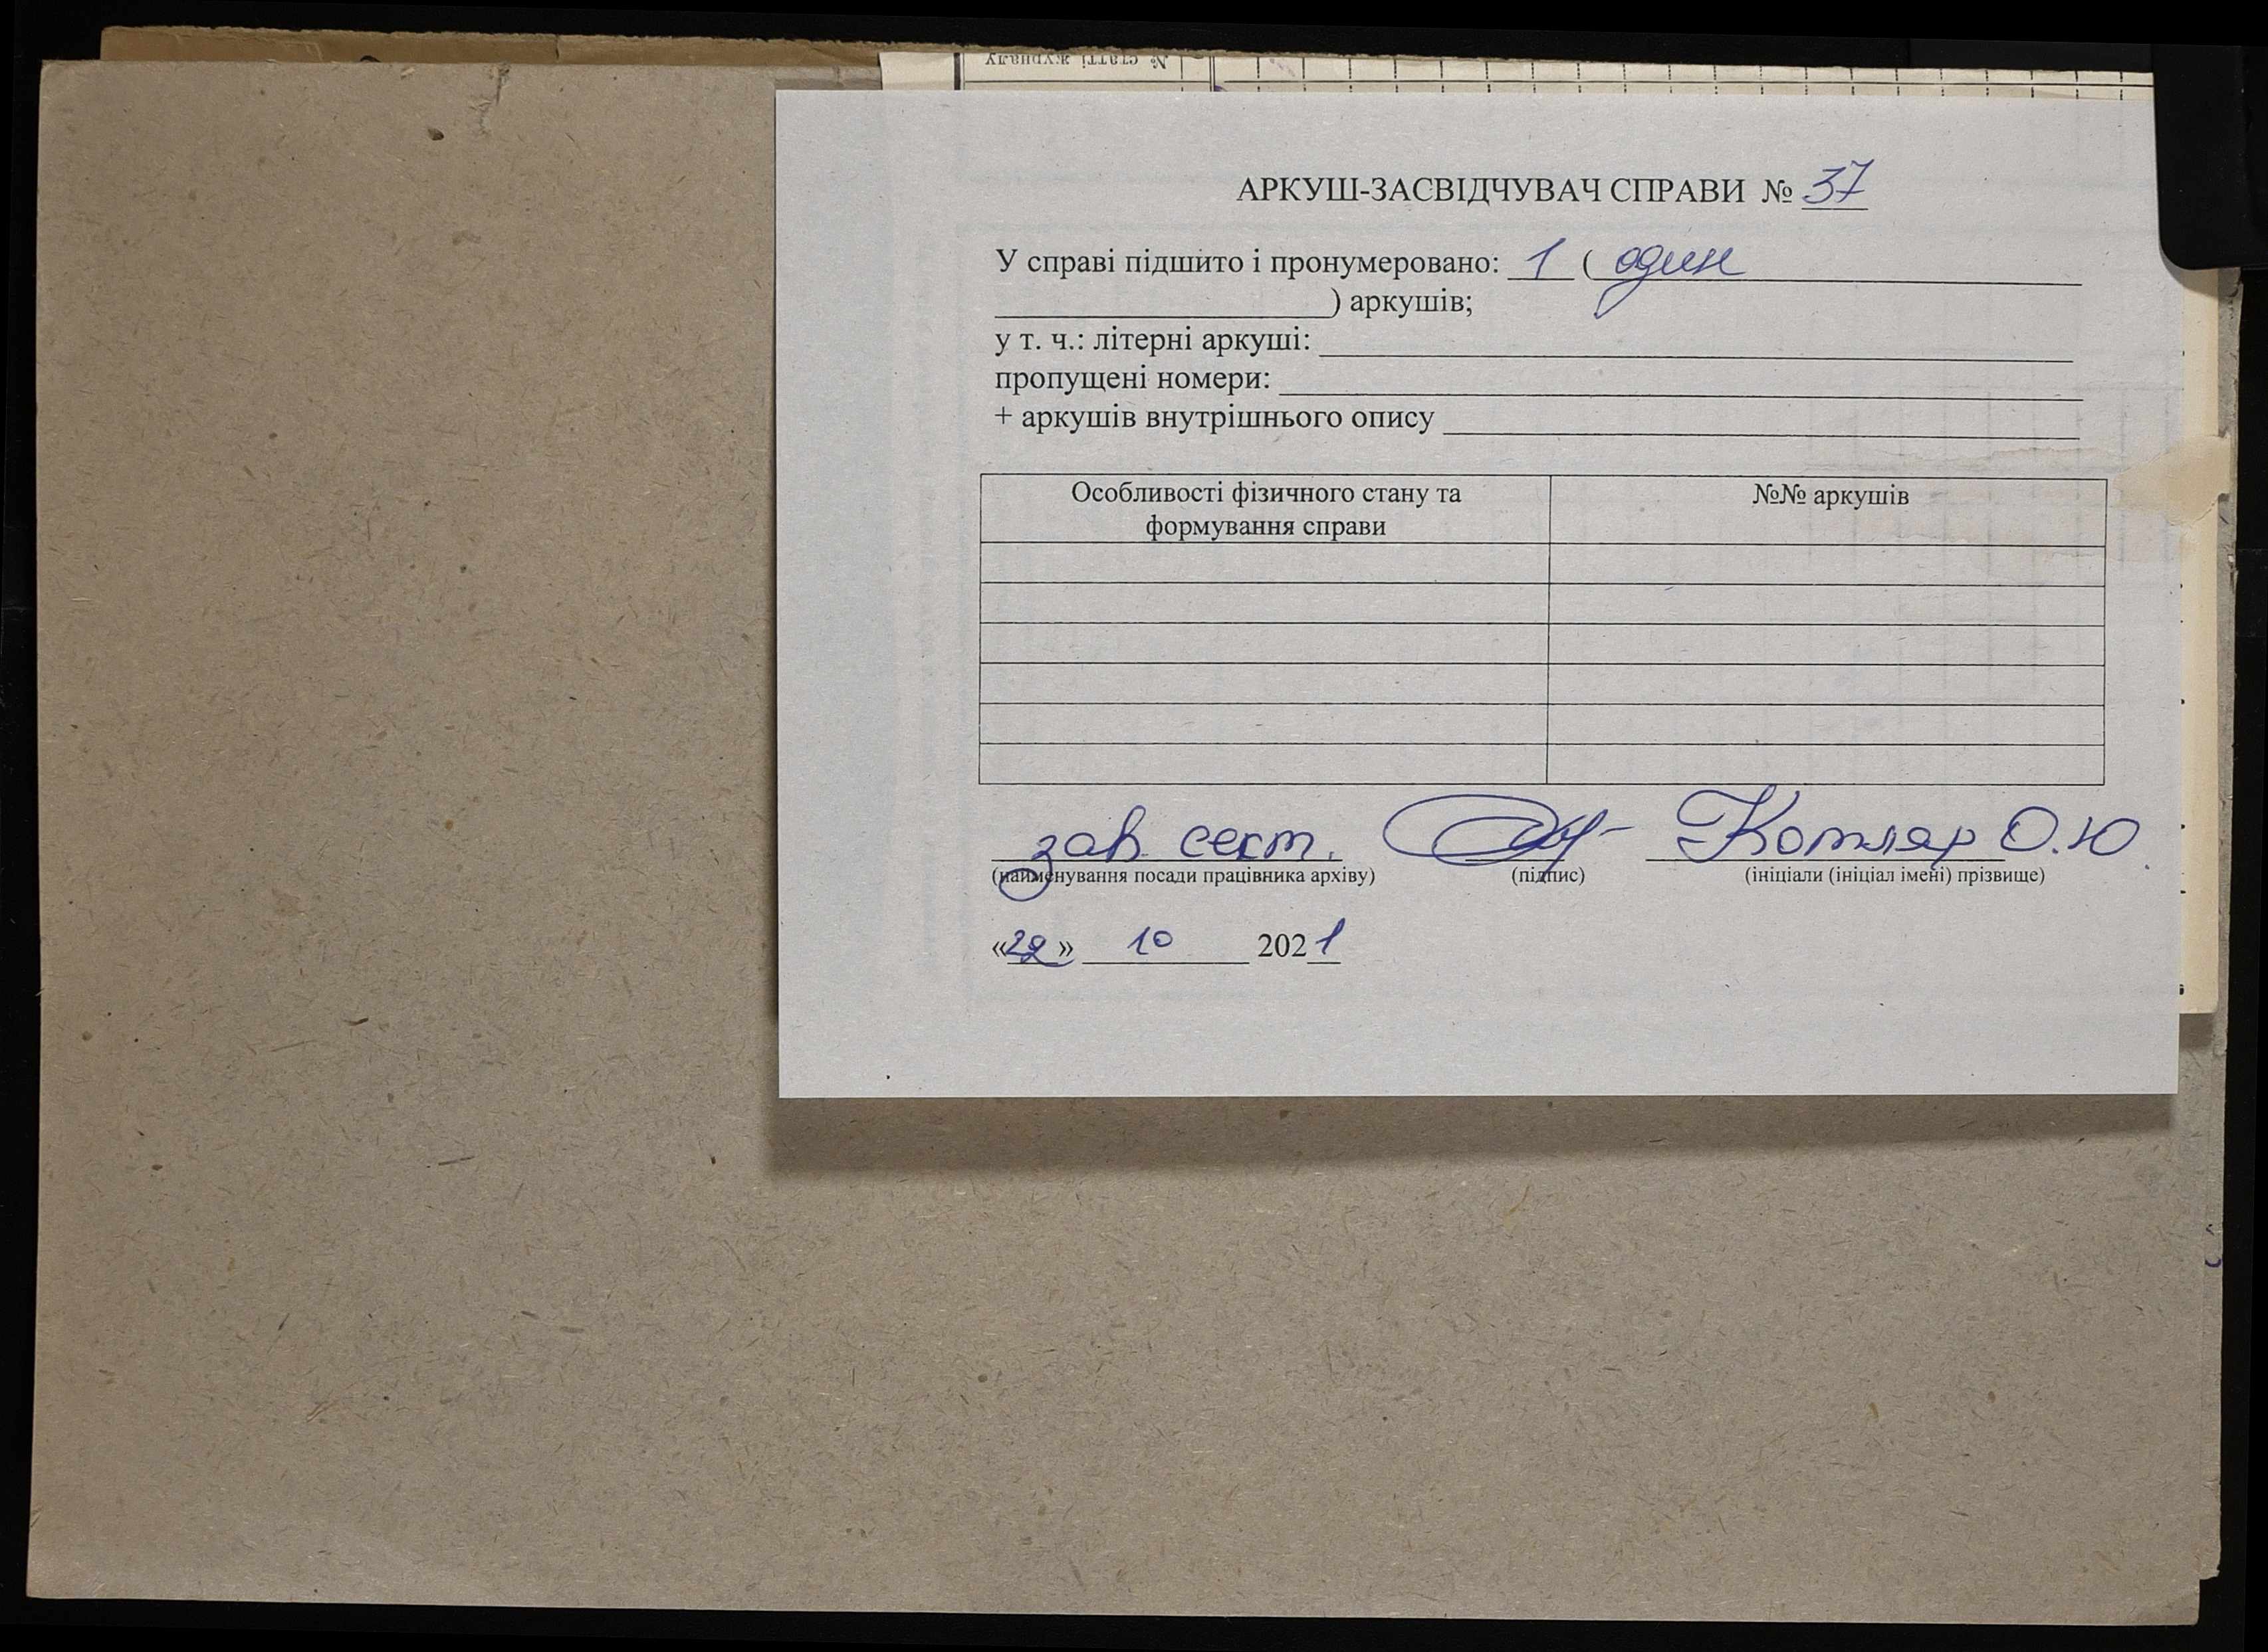 № статті журналу
АРКУШ-ЗАСВІДЧУВАЧ СПРАВИ № 37
У справі підшито і пронумеровано: 1 ( один
) аркушів;
у т. ч.: літерні аркуші:
пропущені номери:
+ аркушів внутрішнього опису
Особливості фізичного стану та формування справи
№№ аркушів
зав. сект. Котляр О.Ю.
(найменування посади працівника архіву) (підпис) (ініціали (ініціал імені) прізвище)
«22» 10 2021